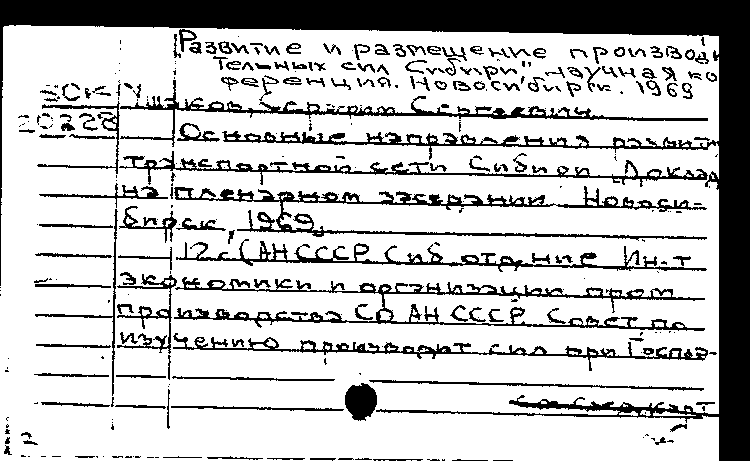 Развитие и размещение производи
тельных сил Сибири", научная ко
ференция. Новосибирск. 1969
Ушаков, Серафим Сергеевич.
20228
Основные направления развити
транспортной сети Сибири. Доклад
на пленарном заседании. Новоси-
бирск, 1969.
12 с. (АН СССР. Сиб. отд-ние. Ин-т
экономики и организации пром.
производства СО АН СССР. Совет по
изучению производит. сил при Госпла-
см. след. карт.
2